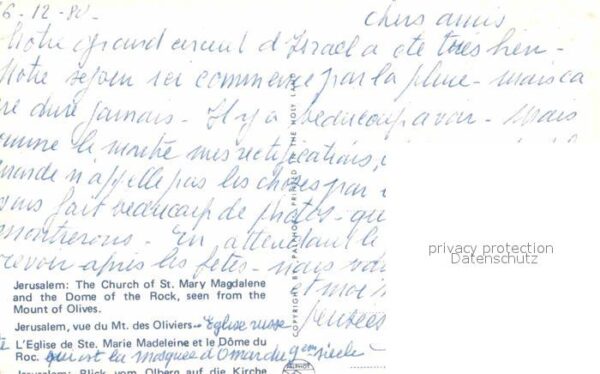 6-12-80
chers amis
Notre grand circuit d'Israel a été très bien -
Notre sejour ici commence par la pluie - mais ca
ne dure jamais - Il y a beaucoup a voir - Mais
comme le montre mes rectifications,
monde n'appelle pas les choses par
vons fait beaucoup de photos - que
montrerons - En attendant le
revoir après les fêtes - nous vous
et moi
pensées
privacy protection
Datenschutz
COPYRIGHT BY PALPHOT PRINTED IN THE HOLY LAND
Jerusalem: The Church of St. Mary Magdalene
and the Dome of the Rock, seen from the
Mount of Olives.
Jerusalem, vue du Mt. des Oliviers - Eglise russe
L'Eglise de Ste. Marie Madeleine et le Dôme du
Roc. qui est la mosquée d'Omar du 9ème siècle -
Jerusalem: Blick vom Ölberg auf die Kirche
PALPHOT